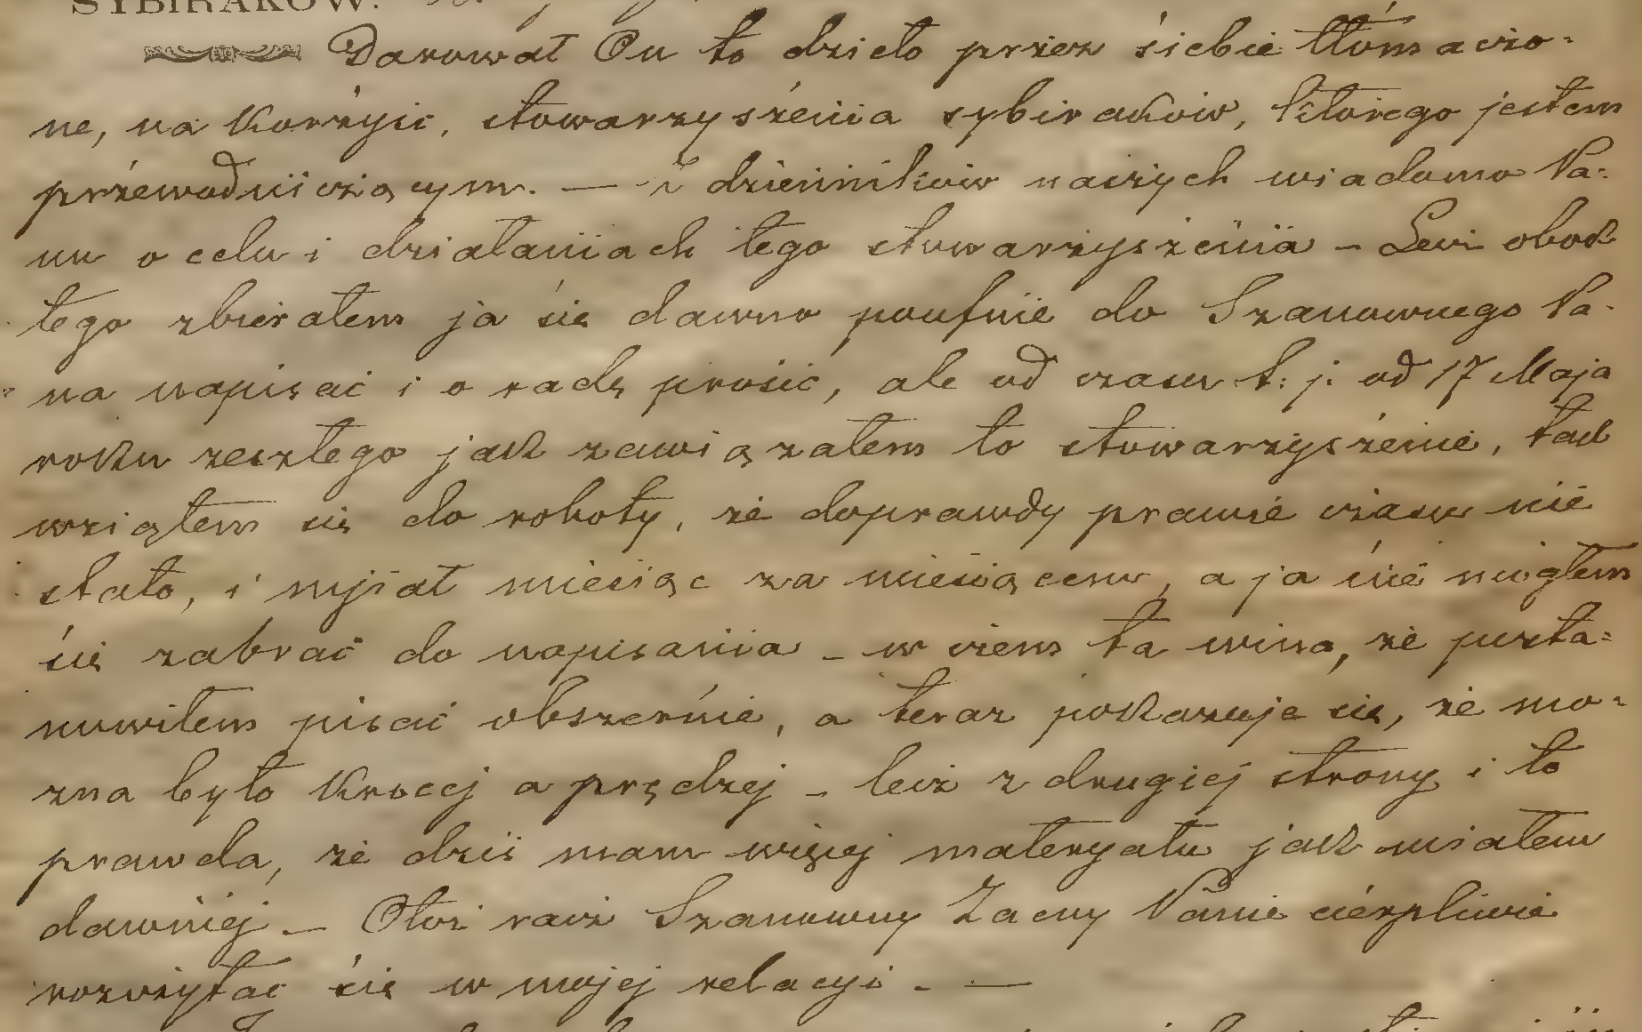 SYBIRAKÓW.
Darował On to dzieło przez siebie tłómaczo-
ne, na korzyść, stowarzyszenia sybiraków, którego jestem
przewodniczącym. — z dzienników naszych wiadomo Pa-
nu o celu i działaniach tego stowarzyszenia – Lecz obok
tego zbierałem ja się dawno poufnie do Szanownego Pa-
na napisać i o radę prosić, ale od czasu t. j. od 17 Maja
roku zeszłego jak zawiązałem to stowarzyszenie, tak
wziąłem się do roboty, że doprawdy prawie czasu nie
stało, i mijał miesiąc za miesiącem, a ja nie mógłem
się zabrać do napisania – w czem ta wina, że posta-
nowiłem pisać obszernie, a teraz pokazuje się, że mo-
żna było krócej a prędzej – lecz z drugiej strony i to
prawda, że dziś mam więcej materyału jak miałem
dawniej – Otóż racz Szanowny Zacny Panie cierpliwie
rozczytać się w mojej relacyi. —